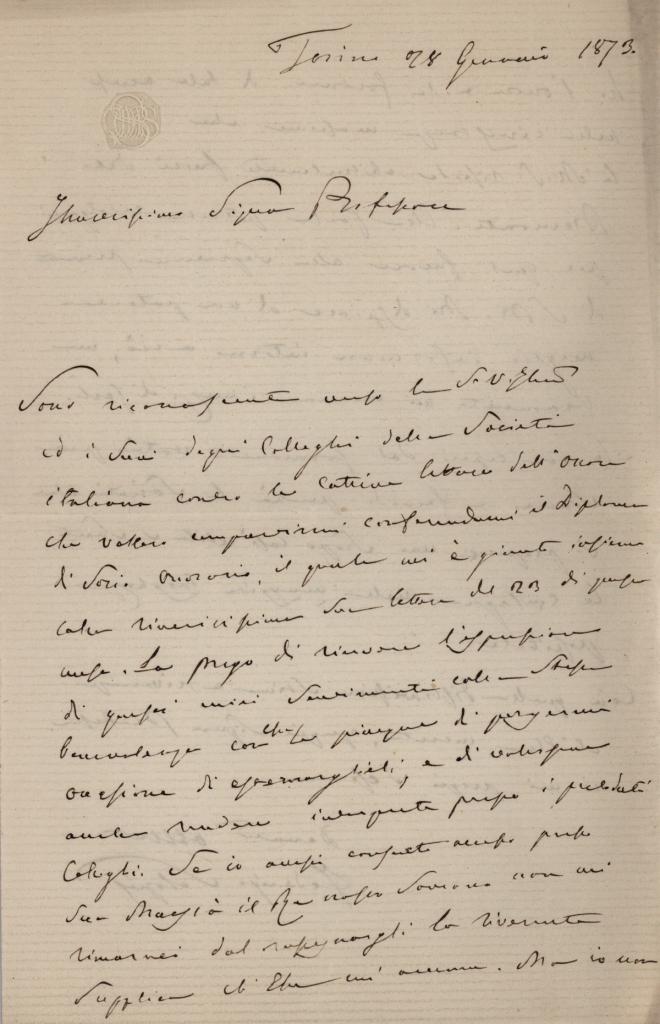 Torino 28 Gennaio 1873.
Illustrissimo Signor Professore
Sono riconoscente verso la S. V. Illma
ed i Suoi degni Colleghi della Società
italiana contro le cattive letture dell'onore
che vollero compartirmi conferendomi il Diploma
di Socio Onorario, il quale mi è giunto insieme
colla riveritissima Sua lettera del 23 di questo
mese. La prego di ricevere l'espressione
di questi miei sentimenti colla stessa
benevolenza con che le piacque di porgermi
occasione di esternarglieli, e di volersene
anche rendere interprete presso i prelodati
Colleghi. Se io avessi accesso presso
Sua Maestà il Re nostro Sovrano non mi
rimarrei dal rassegnargli la riverente
supplica ch'Ella mi accenna. Ma io non